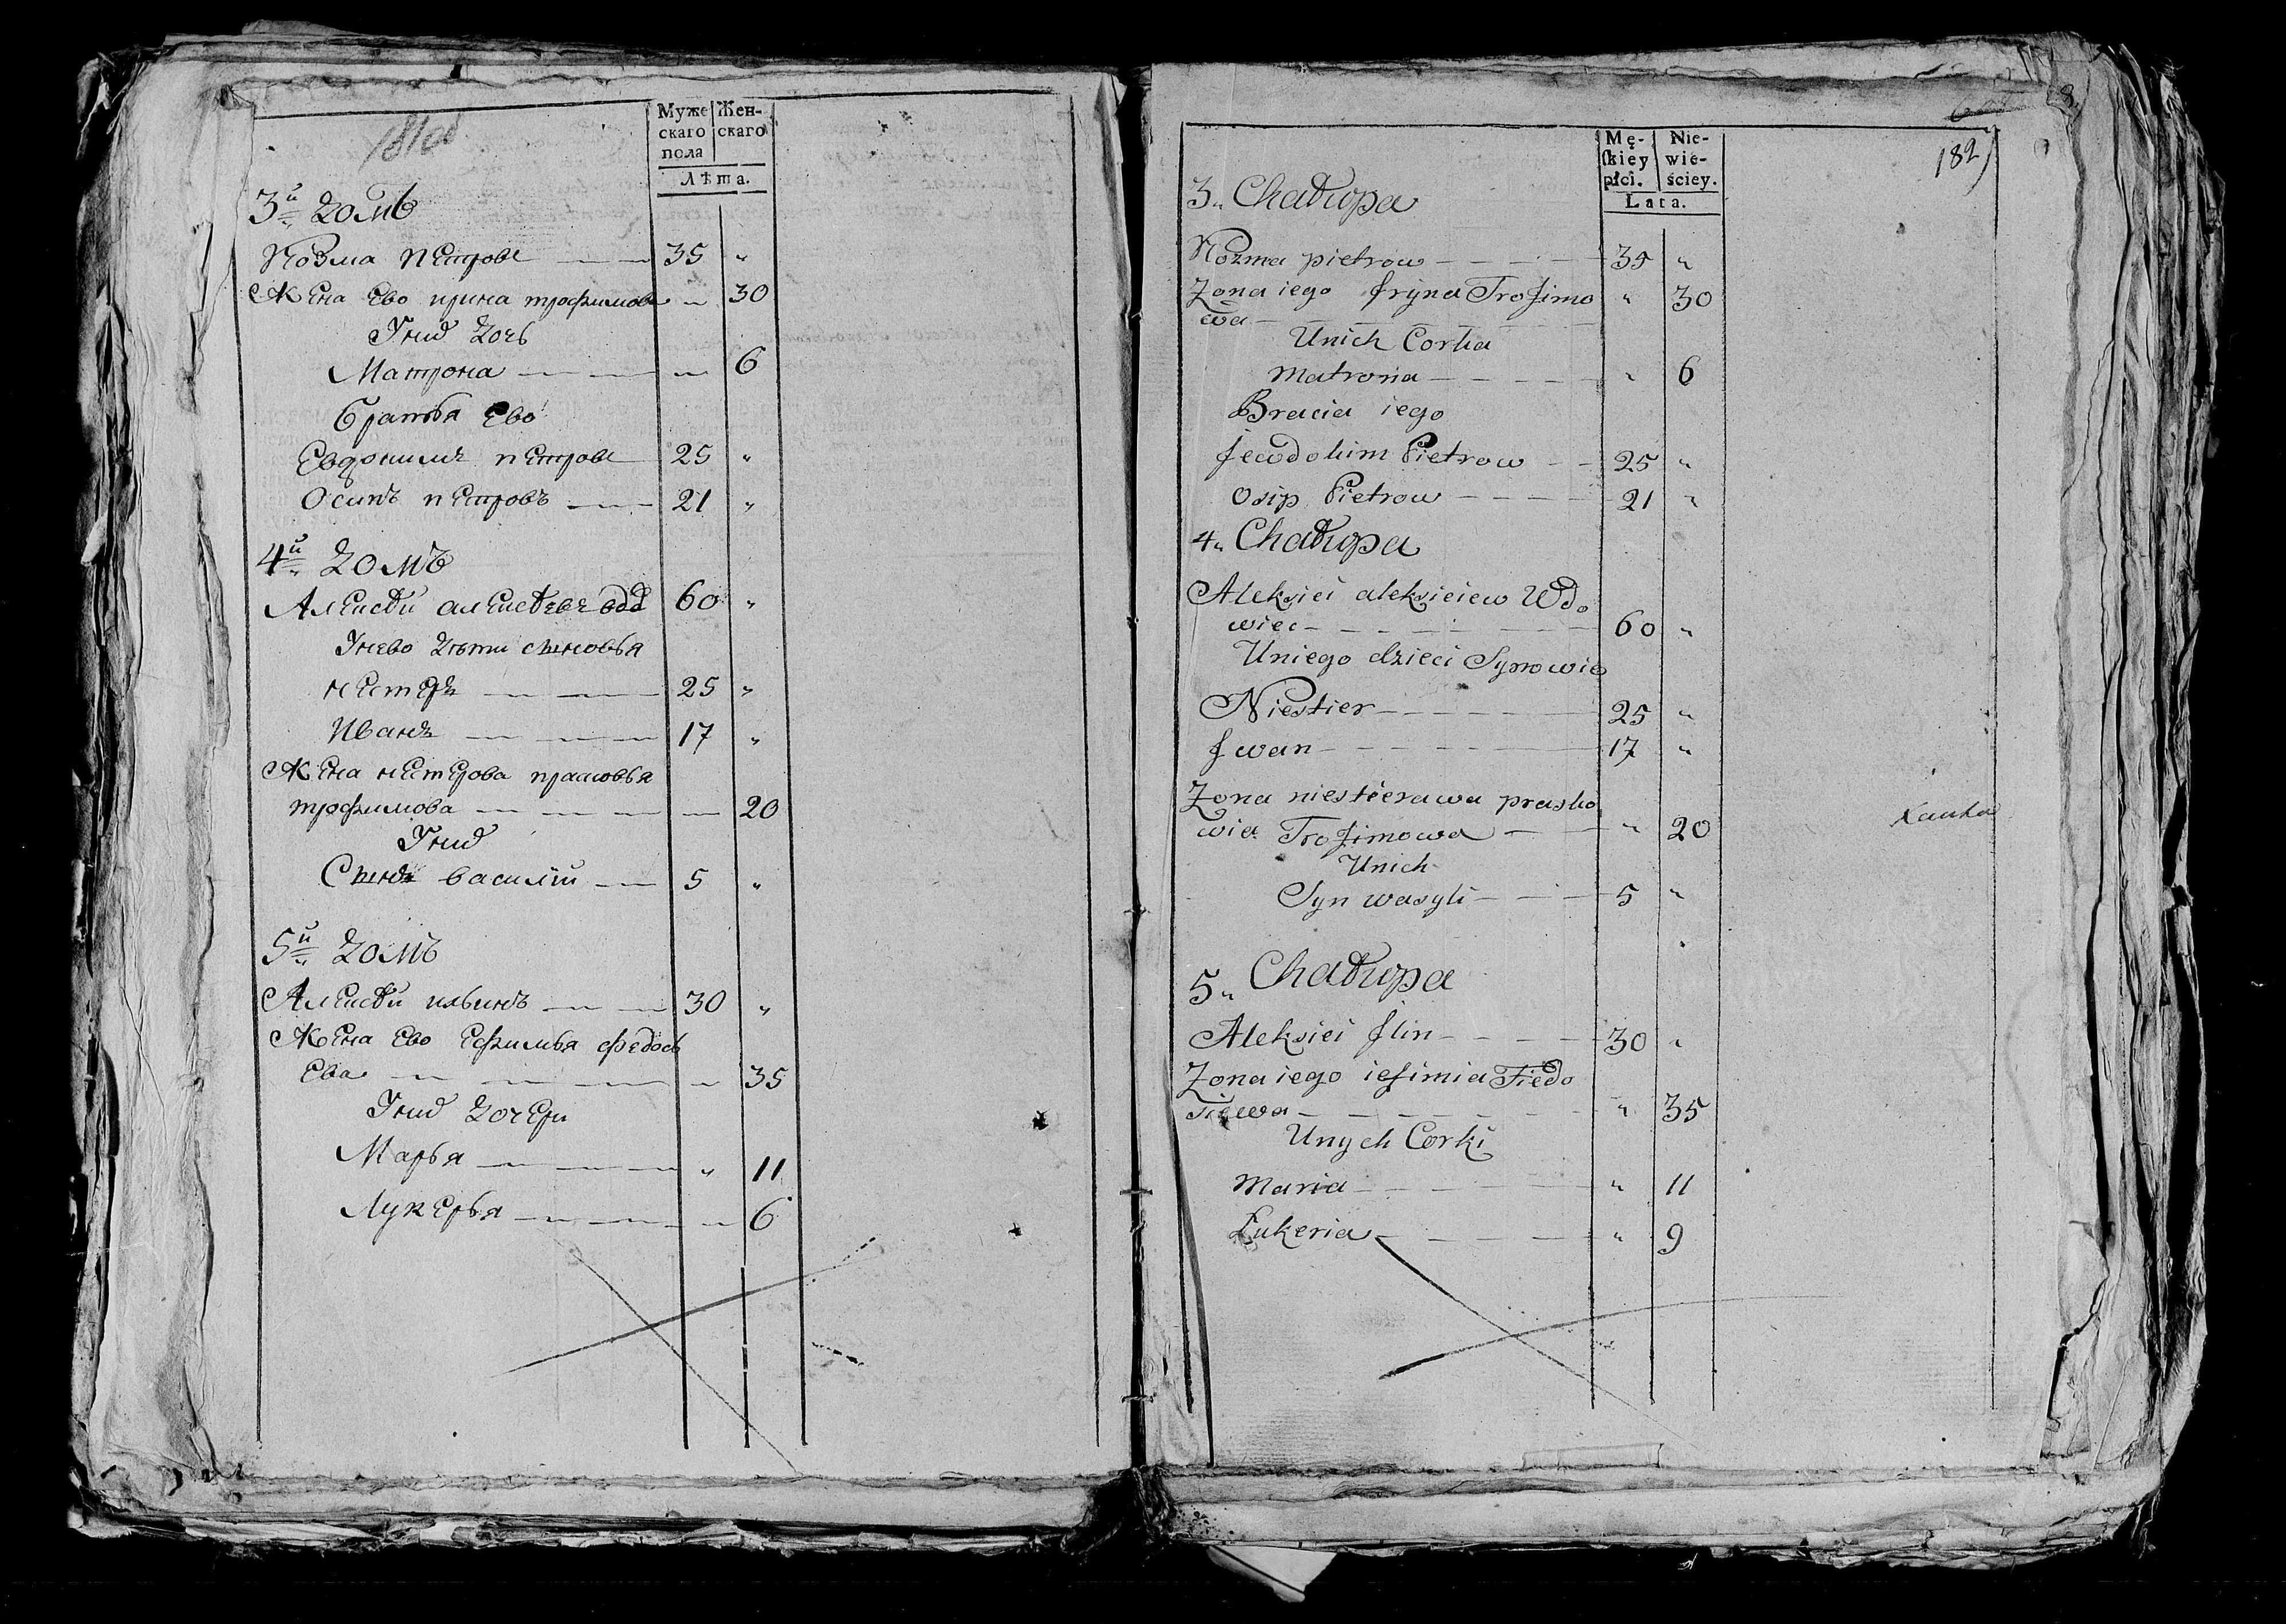 181об
Муже
скаго
пола
Жен-
скаго
Лѣта.
3й домъ
Козма петровъ 35 "
Жена ево ирина трофимова " 30
У них дочь
Матрона " 6
братья ево
Евдокимъ петровъ 25 "
Осипъ петровъ 21 "
4й домъ
Алексѣй алексѣевъ вдо 60 "
У нево дѣти сыновья
нестеръ 25 "
Иванъ 17 "
Жена нестерова прасковья
трофимова 20
У них
Сынъ василiй 5 "
5й домъ
Алексѣй ильинъ 30 "
Жена ево ефимья федосѣ
ева " 35
У них дочери
Марья " 11
Лукерья 6
182
Mę-
skiey
płci.
Nie-
wie-
ściey.
Lata.
3" Chałupa
Kozma pietrow 35 "
Zona iego Jryna Trofimo " 30
wa
Unich Corka
matrona " 6
Bracia iego
Jewdokim Pietrow 25 "
Osip Pietrow 21 "
4" Chałupa
Aleksiei aleksieiew Wdo
wiec 60 "
Uniego dzieci Synowie
Niestier 25 "
Jwan 17 "
Zona niestierawa prasko
wia Trofimowa " 20
Unich
Syn wasyli 5 "
5" Chałupa
Aleksiei Jlin 30 "
Zona iego iefimia Fiedo
siewa " 35
Unych Corki
maria " 11
Łukeria " 9